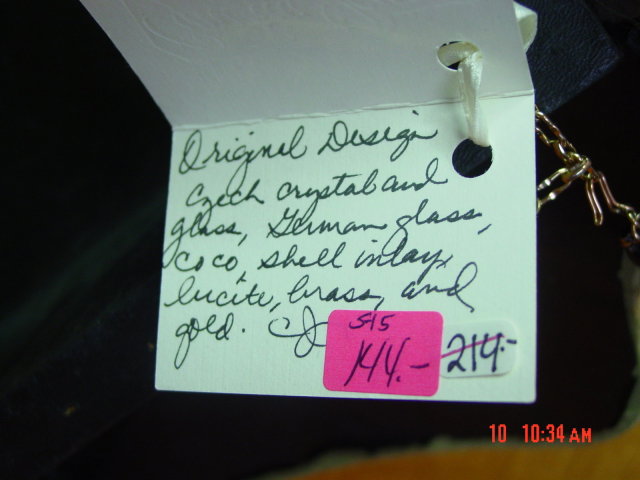 Original Design
Czech crystal and
glass, German glass,
coco, shell inlay,
lucite, brass, and
gold. CJ
515
144.-
214.-
10 10:34 AM